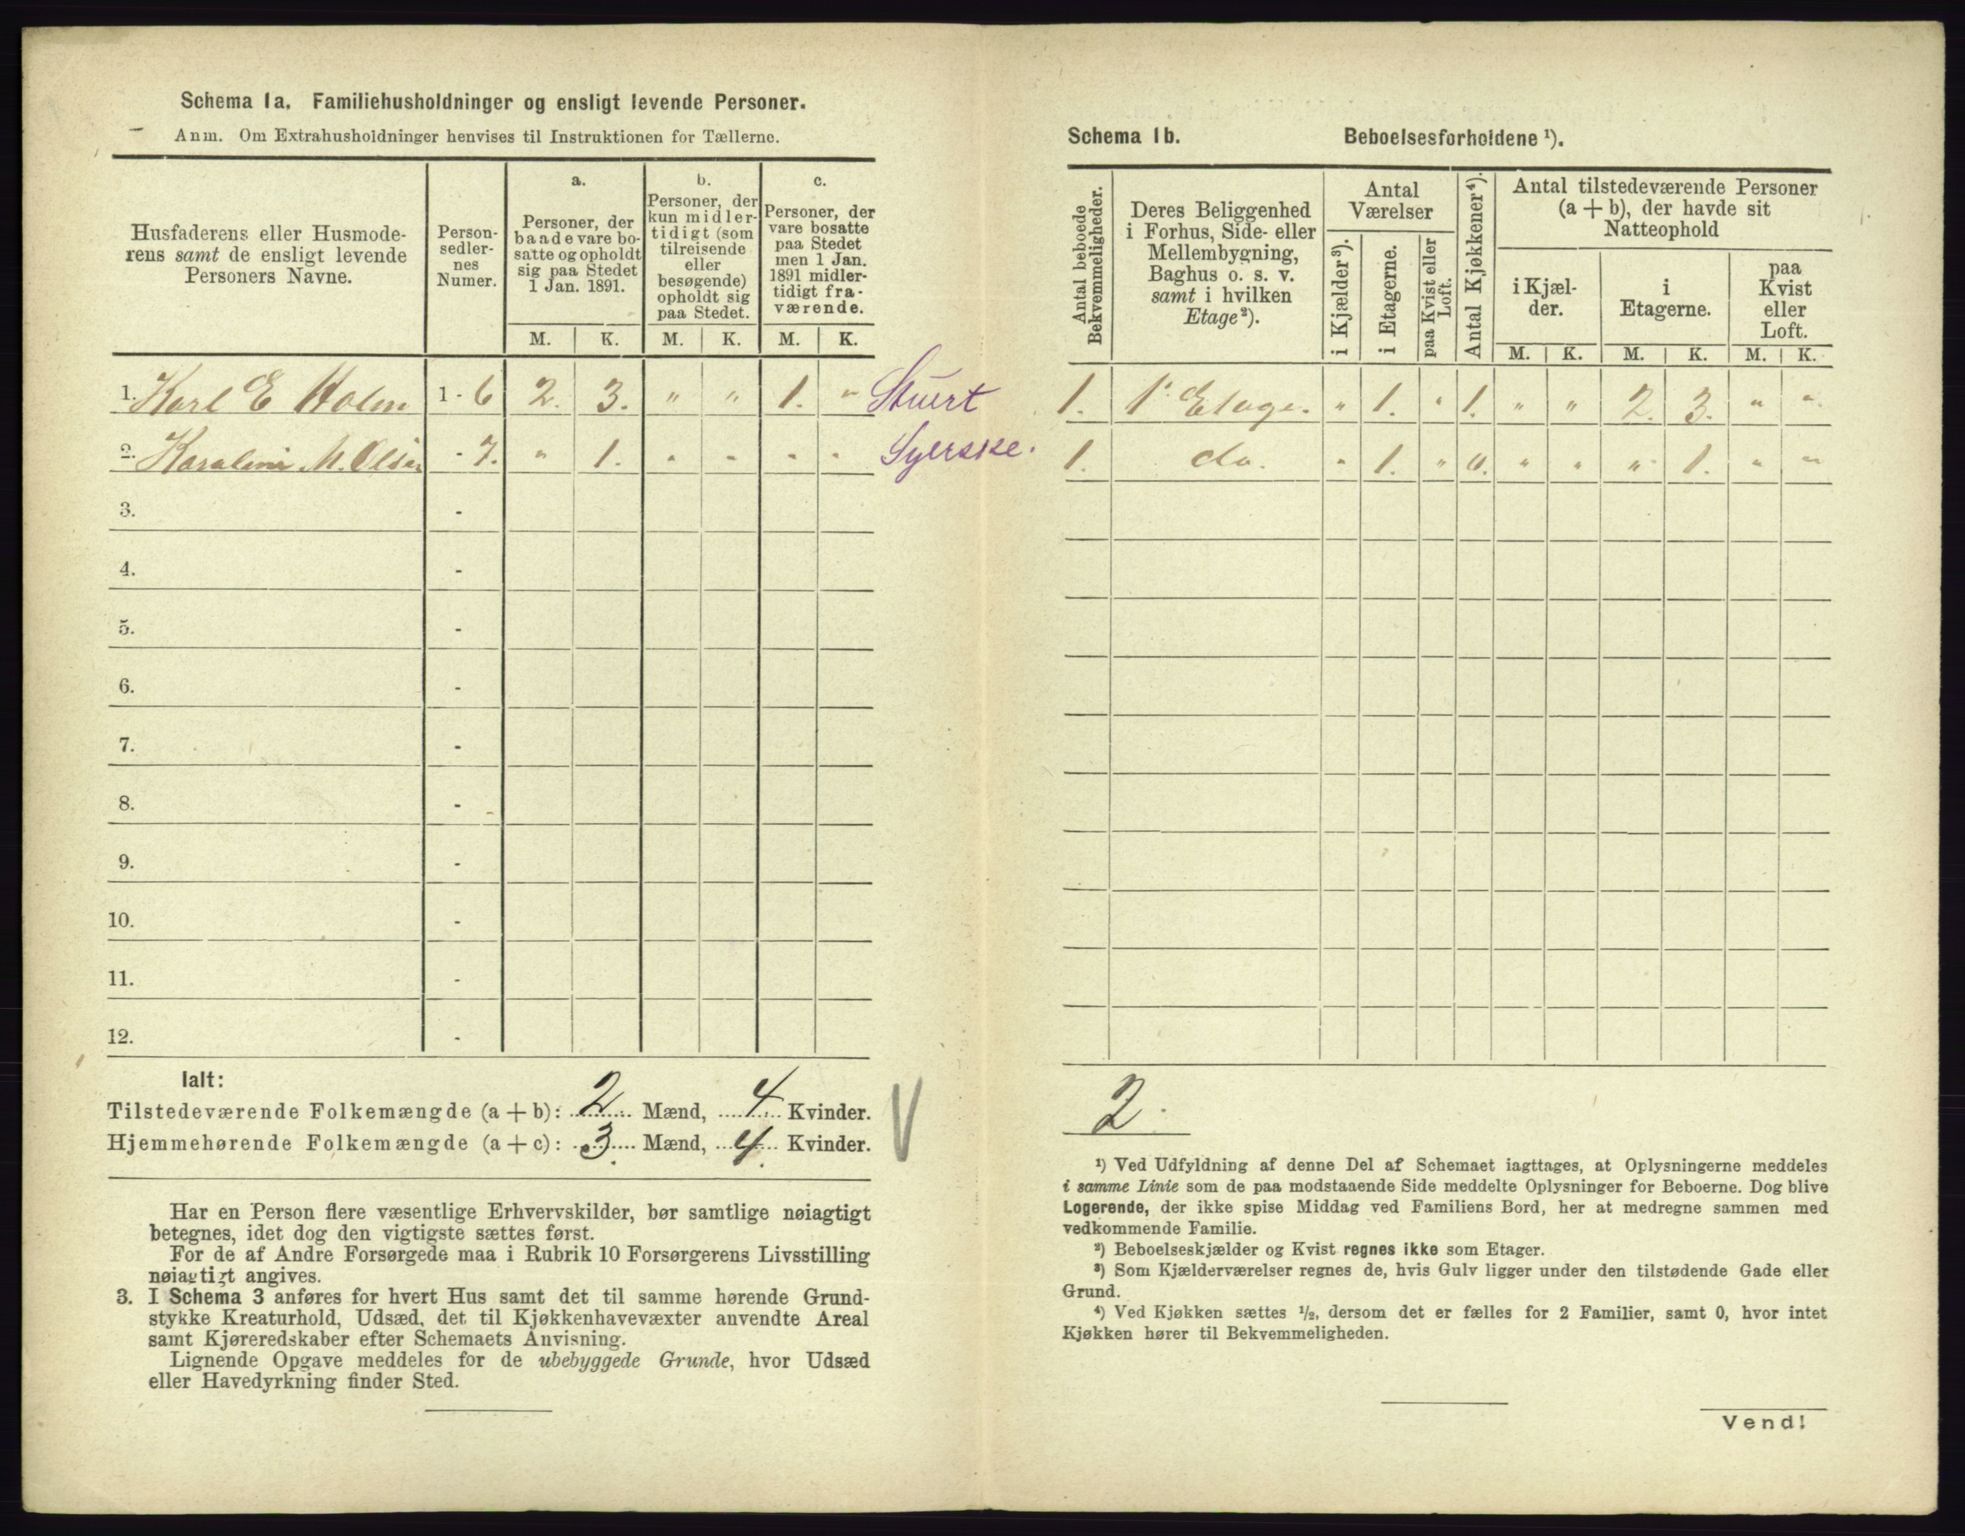 Schema 1a. Familiehusholdninger og ensligt levende Personer.
Anm. Om Extrahusholdninger henvises til Instruktionen for Tællerne.
Husfaderens eller Husmode-
rens samt de ensligt levende
Personers Navne.
Person-
sedler-
nes
Numer.
a.
Personer, der
baade vare bo-
satte og opholdt
sig paa Stedet
1 Jan. 1891.
b.
Personer, der
kun midler-
tidigt (som
tilreisende
eller
besøgende)
opholdt sig
paa Stedet.
c.
Personer, der
vare bosatte
paa Stedet
men 1 Jan.
1891 midler-
tidigt fra-
værende.
M. K. M. K. M. K.
1. Karl E Holm 1 - 6 2. 3. " " 1. " Stuert
2. Karoline M. Olsen - 7. " 1. " " " " Syerske.
3. -
4. -
5. -
6. -
7. -
8. -
9. -
10. -
11. -
12. -
Ialt:
Tilstedeværende Folkemængde (a + b): 2 Mænd, 4 Kvinder.
Hjemmehørende Folkemængde (a + c): 3 Mænd, 4 Kvinder.
Har en Person flere væsentlige Erhvervskilder, bør samtlige nøiagtigt
betegnes, idet dog den vigtigste sættes først.
For de af Andre Forsørgede maa i Rubrik 10 Forsørgerens Livsstilling
nøiagtigt angives.
3. I Schema 3 anføres for hvert Hus samt det til samme hørende Grund-
stykke Kreaturhold, Udsæd, det til Kjøkkenhavevæxter anvendte Areal
samt Kjøreredskaber efter Schemaets Anvisning.
Lignende Opgave meddeles for de ubebyggede Grunde, hvor Udsæd
eller Havedyrkning finder Sted.
Schema 1b. Beboelsesforholdene ¹).
Antal beboede
Bekvemmeligheder.
Deres Beliggenhed
i Forhus, Side- eller
Mellembygning,
Baghus o. s. v.
samt i hvilken
Etage²).
Antal
Værelser
i Kjælder³).
i Etagerne.
paa Kvist eller
Loft.
Antal Kjøkkener⁴).
Antal tilstedeværende Personer
(a + b), der havde sit
Natteophold
i Kjæl-
der.
i
Etagerne.
paa
Kvist
eller
Loft.
M. K. M. K. M. K.
1. 1. Etage. " 1. " 1. " " 2. 3. " "
1. do. " 1. " 0. " " " 1. " "
2.
¹) Ved Udfyldning af denne Del af Schemaet iagttages, at Oplysningerne meddeles
i samme Linie som de paa modstaaende Side meddelte Oplysninger for Beboerne. Dog blive
Logerende, der ikke spise Middag ved Familiens Bord, her at medregne sammen med
vedkommende Familie.
²) Beboelseskjælder og Kvist regnes ikke som Etager.
³) Som Kjælderværelser regnes de, hvis Gulv ligger under den tilstødende Gade eller
Grund.
⁴) Ved Kjøkken sættes ½, dersom det er fælles for 2 Familier, samt 0, hvor intet
Kjøkken hører til Bekvemmeligheden.
Vend!